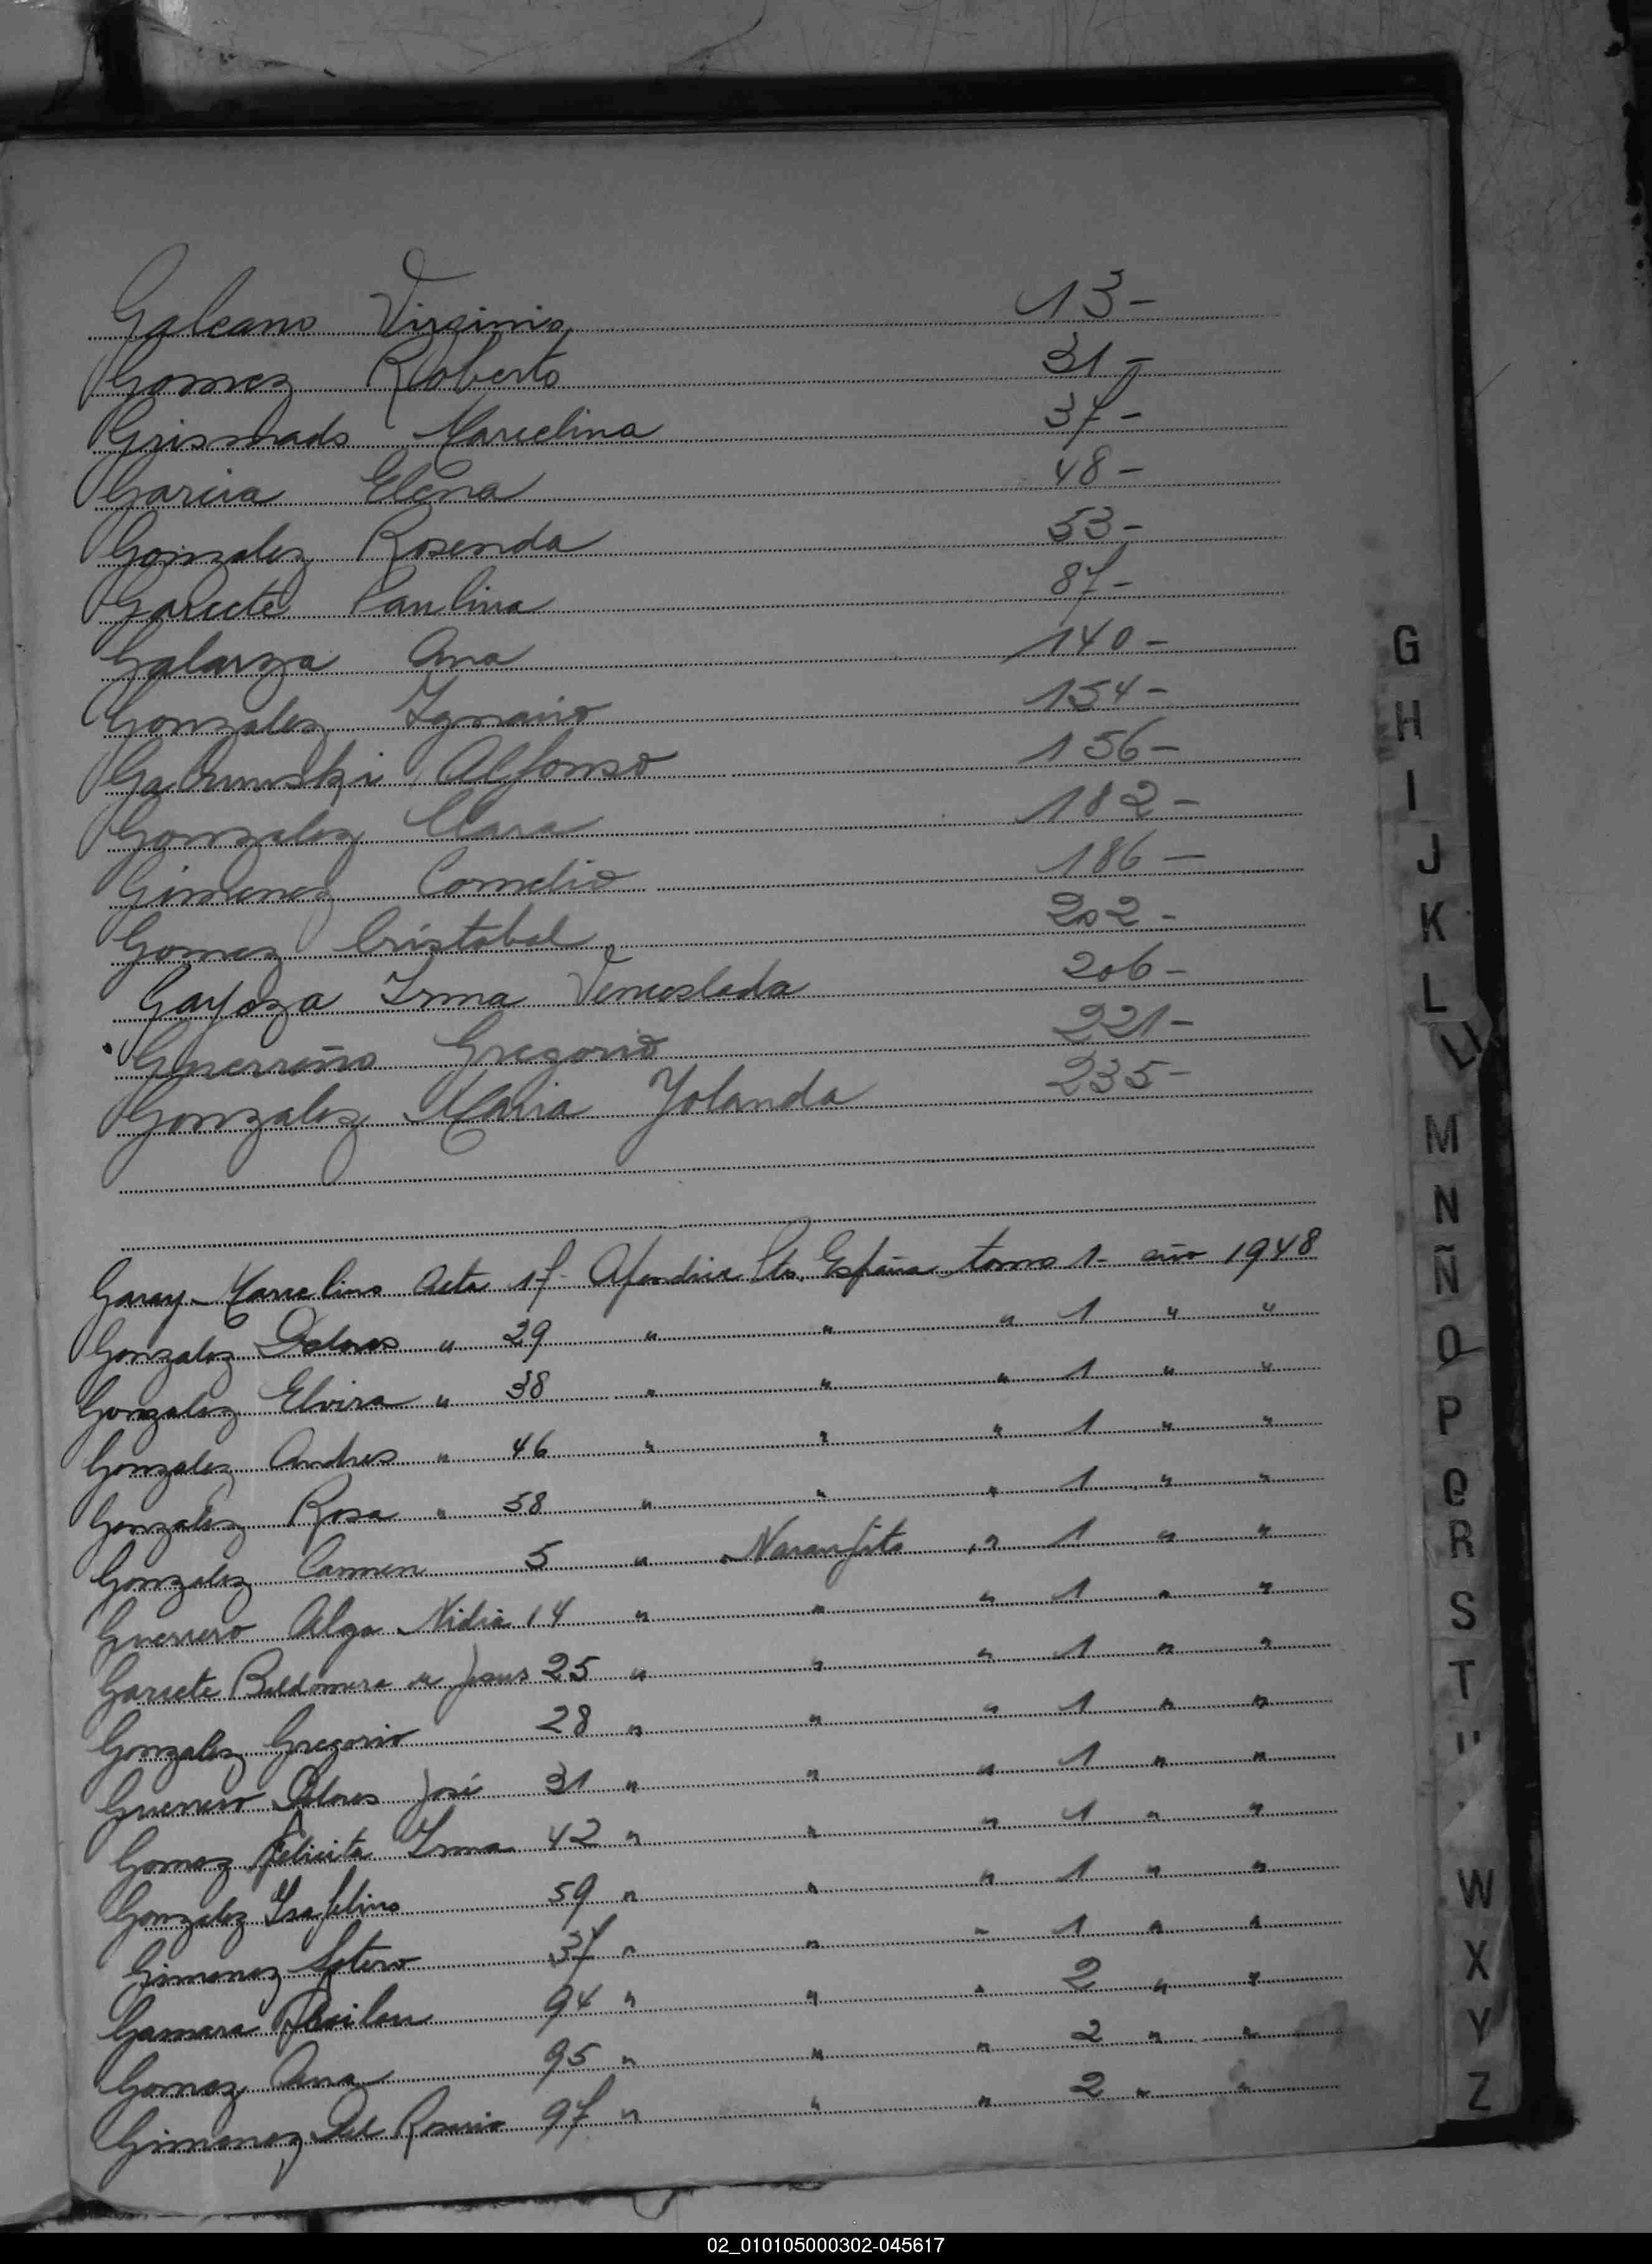 Galeano Virginia 13-
Gomez Roberto 31-
Grismado Marcelina 37-
Garcia Elena 48-
Gonzalez Rosenda 53-
Garcete Paulina 87-
Galarza Ana 140-
Gonzalez Ignacio 154-
Alfonso 156-
Gonzalez Clara 182-
Gimenez Cornelio 186-
Gomez Cristobal 202-
Gayoza Irma Venceslada 206-
Guerreño Gregorio 221-
Gonzalez Maria Yolanda 235-
Garay Marcelino Acta 17- Apendice Pto. España tomo 1- año 1948
Gonzalez Dolores " 29 " " " 1 " "
Gonzalez Elvira " 38 " " " 1 " "
Gonzalez Andres " 46 " " " 1 " "
Gonzalez Rosa " 58 " " " 1 " "
Gonzalez Carmen 5 " Naranjito " 1 " "
Guerrero Alga Nidia 14 " " " 1 " "
Garcete Baldomera de Jesus 25 " " " 1 " "
Gonzalez Gregorio 28 " " " 1 " "
Guerrero Dolores José 31 " " " 1 " "
Gomez Felicita Irma 42 " " " 1 " "
Gonzalez 59 " " " 1 " "
Gimenez Sotero 37 " " " 1 " "
Gamara 94 " " " 2 " "
Gomez Ana 95 " " " 2 " "
Gimenez Del Rosario 97 " " " 2 " "
G
H
I
J
K
L
Ll
M
N
Ñ
O
P
Q
R
S
T
"
W
X
Y
Z
02_010105000302-045617